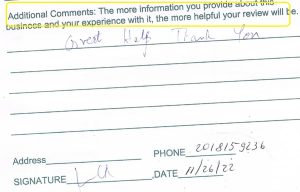 Additional Comments: The more information you provide about this
business and your experience with it, the more helpful your review will be.
Great Help Thank You
PHONE 2018159236
Address
SIGNATURE DATE 11/26/22